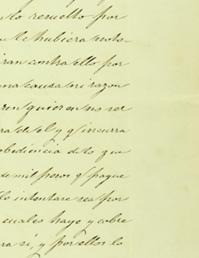 lo resuelto por
se le hubiera noto-
iran contra ello por
una causa ni razon
ren quier en us ser
ra de el y q̃ incurra
obediencia de lo que
de mil pesos q̃ pague
lo intentare sea por
cuales haya y cobre
ra si, y por ellos lo